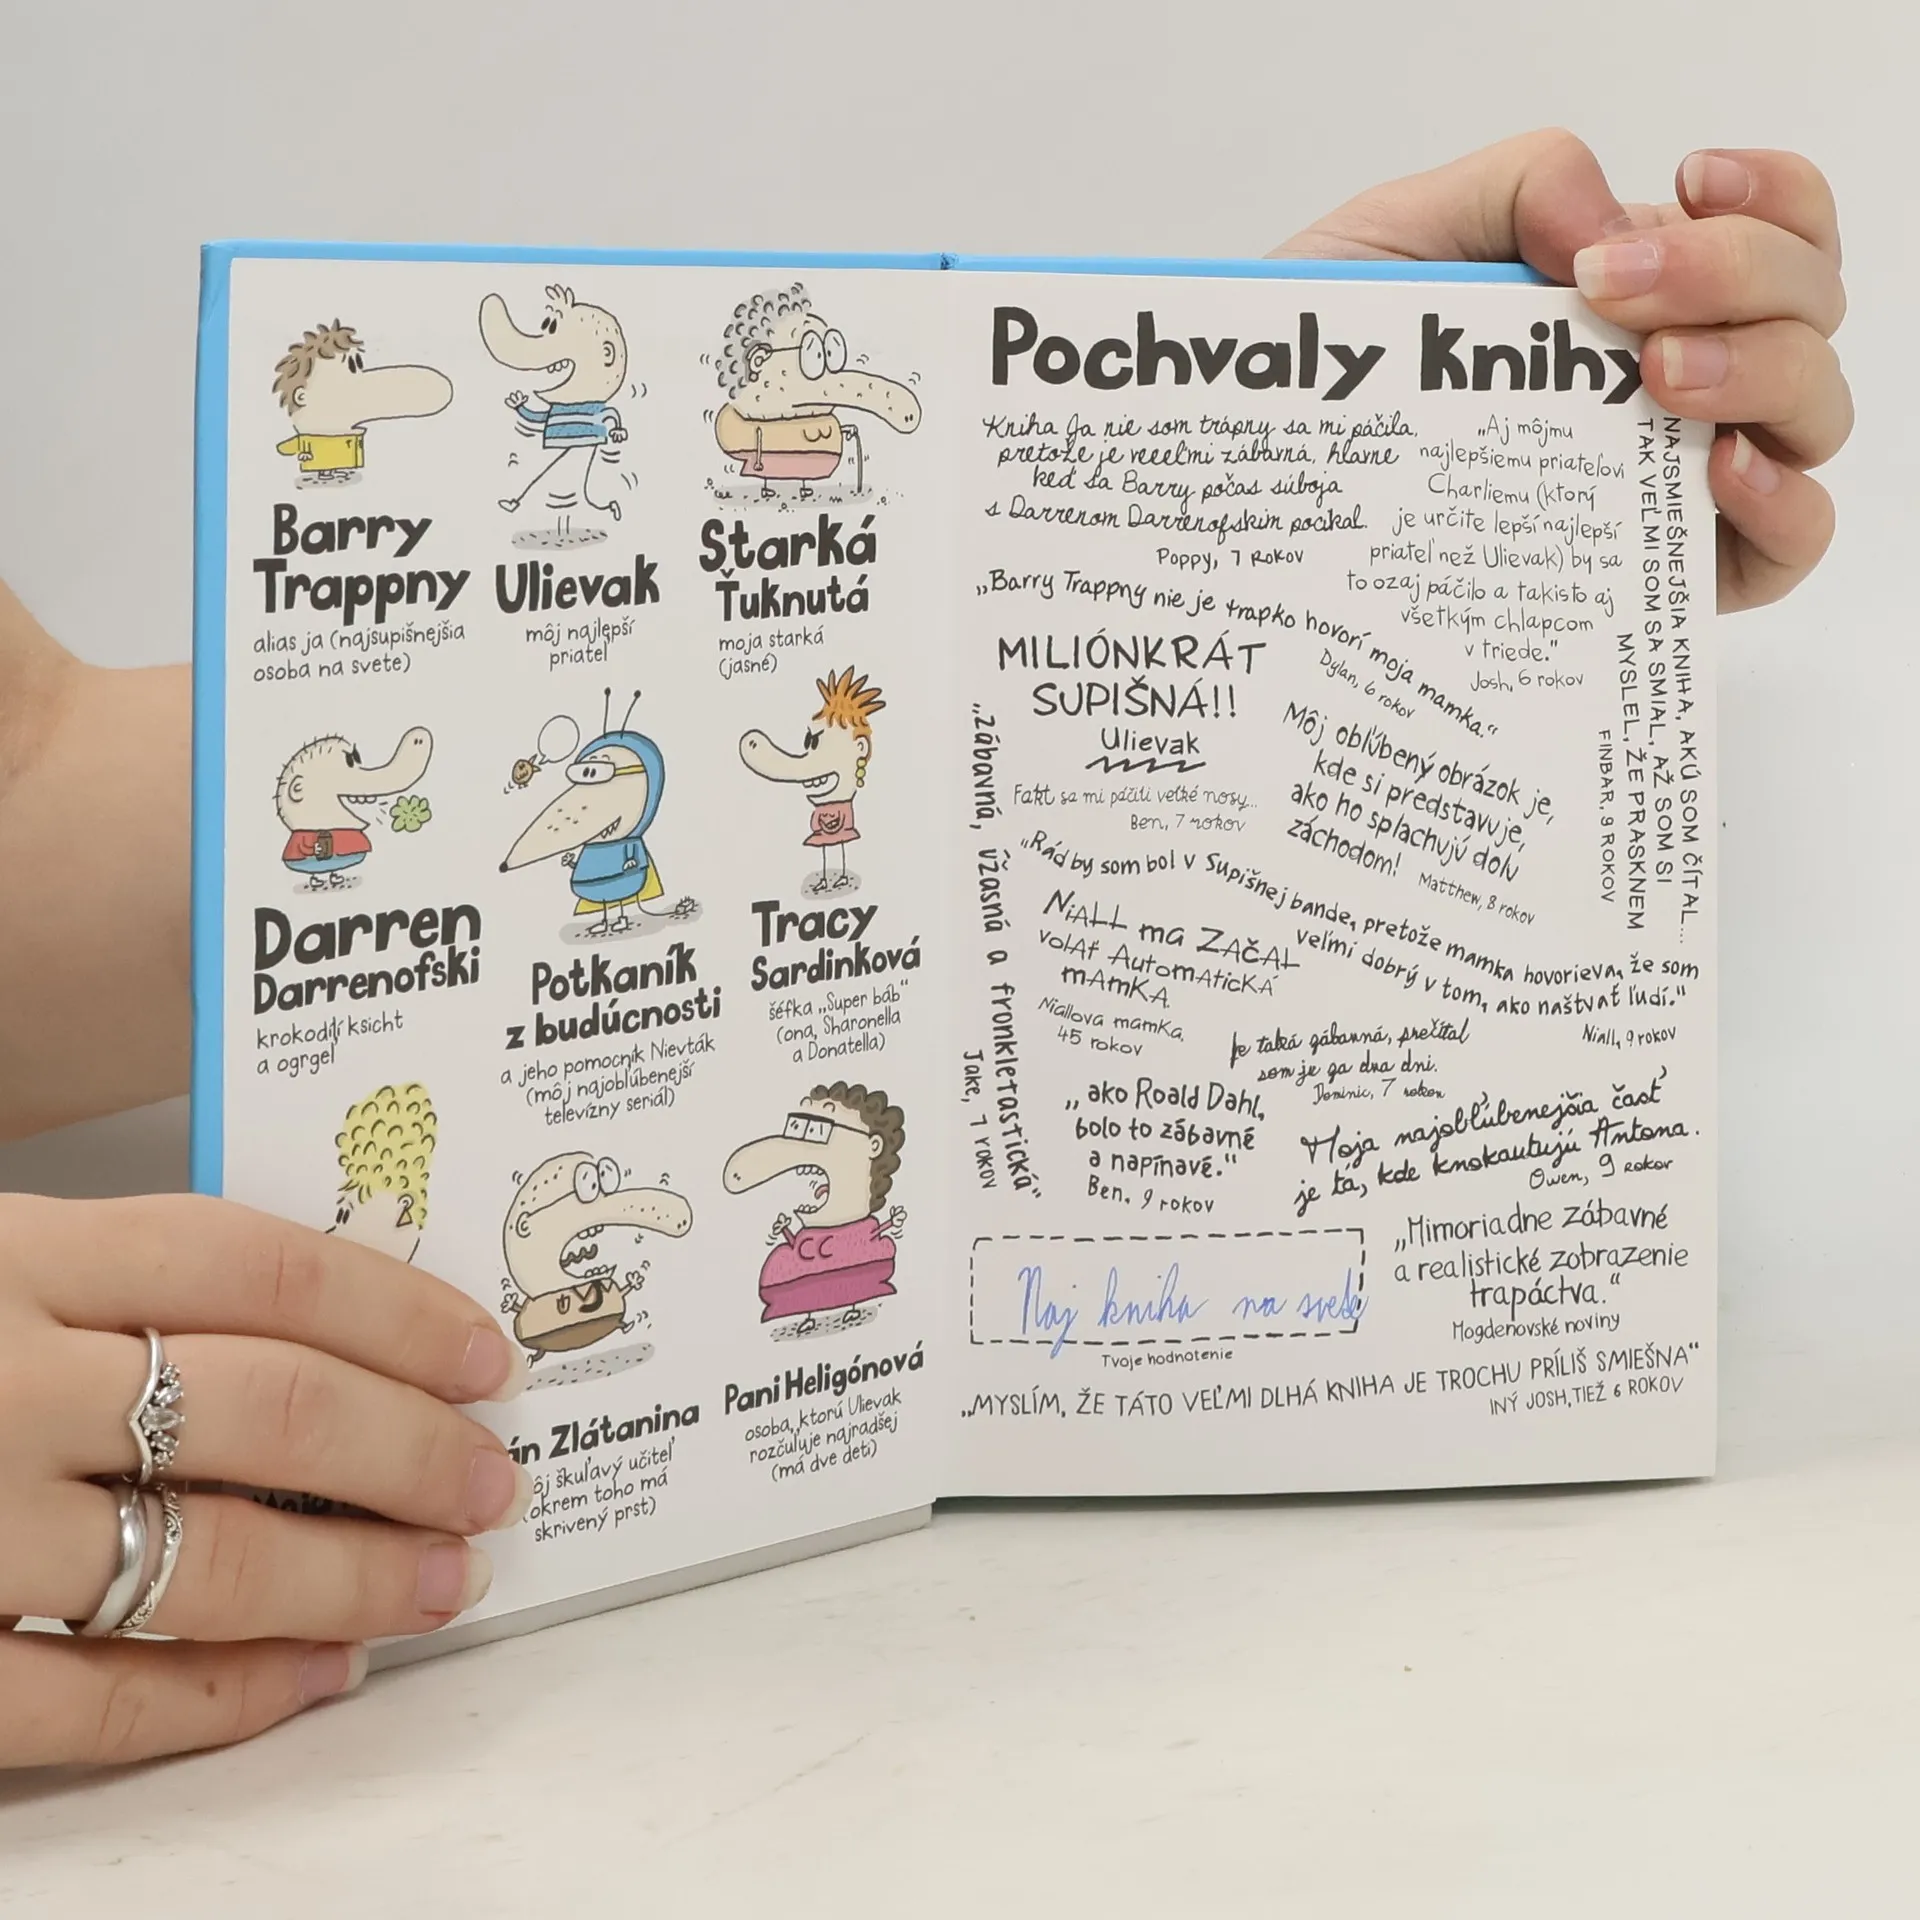 Barry
Trappny
alias ja (najsupišnejšia
osoba na svete)
Ulievak
môj najlepší
priateľ
Starká
Ťuknutá
moja starká
(jasné)
Darren
Darrenofski
krokodílí ksicht
a ogrgeľ
Potkaník
z budúcnosti
a jeho pomocník Nievták
(môj najobľúbenejší
televízny seriál)
Tracy
Sardinková
šéfka „Super báb“
(ona, Sharonella
a Donatella)
Zlátanina
škuľavý učiteľ
(okrem toho má
skrivený prst)
CC
Pani Heligónová
osoba, ktorú Ulievak
rozčuľuje najradšej
(má dve deti)
Pochvaly knihy
Kniha Ja nie som trápny sa mi páčila,
pretože je veeeľmi zábavná, hlavne
keď sa Barry počas súboja
s Darrenom Darrenofskim pocikal.
Poppy, 7 rokov
„Aj môjmu
najlepšiemu priateľovi
Charliemu (ktorý
je určite lepší najlepší
priateľ než Ulievak) by sa
to ozaj páčilo a takisto aj
všetkým chlapcom
v triede.“
Josh, 6 rokov
NAJSMIEŠNEJŠIA KNIHA, AKÚ SOM ČÍTAL...
TAK VEĽMI SOM SA SMIAL, AŽ SOM SI
MYSLEL, ŽE PRASKNEM
FINBAR, 9 ROKOV
„Barry Trappny nie je trapko hovorí moja mamka.“
Dylan, 6 rokov
MILIÓNKRÁT
SUPIŠNÁ!!
Ulievak
Fakt sa mi páčili veľké nosy...
Ben, 7 rokov
Môj obľúbený obrázok je,
kde si predstavuje,
ako ho splachujú dolu
záchodom!
Matthew, 8 rokov
„Zábavná, úžasná a fronkletastická“
Jake, 7 rokov
„Rád by som bol v Supišnej bande, pretože mamka hovorieva, že som
veľmi dobrý v tom, ako naštvať ľudí.“
Niall, 9 rokov
NiALL ma ZAČAL
volAť AutomAtickÁ
mAmKA
Niallova mamka,
45 rokov
Je taká zábavná, prečítal
som je za dva dni.
Dominic, 7 rokov
„ako Roald Dahl,
bolo to zábavné
a napínavé.“
Ben, 9 rokov
Moja najobľúbenejšia časť
je tá, kde knokautujú Antona.
Owen, 9 rokov
„Mimoriadne zábavné
a realistické zobrazenie
trapáctva.“
Mogdenovské noviny
Naj kniha na svete
Tvoje hodnotenie
„MYSLÍM, ŽE TÁTO VEĽMI DLHÁ KNIHA JE TROCHU PRÍLIŠ SMIEŠNA“
INÝ JOSH, TIEŽ 6 ROKOV